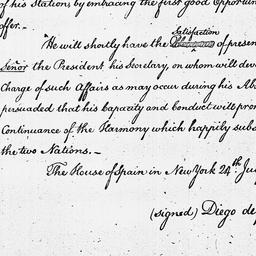 of his Stations by embracing the first good Opportun
offer. _
Satisfaction
"He will shortly have the of presen
Señor the President his Secretary, on whom will devo
Charge of such Affairs as may occur during his Ab
persuaded that his Capacity and Conduct will prom
Continuance of the Harmony which happily subs
the two Nations. _
The House of Spain in New York 24th. Ju
(signed) Diego de